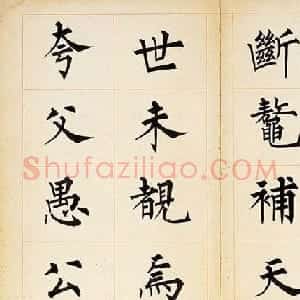 斷鼇補天
世未覩焉
夸父愚公
Shufaziliao.com